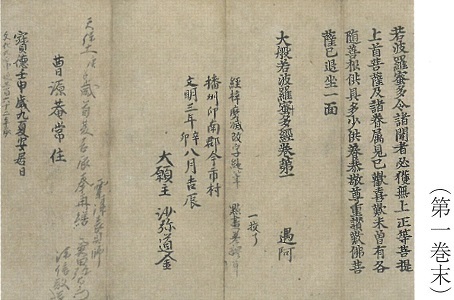 （第一巻末）
若波羅蜜多令諸聞者必獲無上正等菩提
上首菩薩及諸眷属見已歡喜歎未曾有各
隨善根供具多少供養恭敬尊重讃歎佛菩
薩已退坐一面
大般若波羅蜜多經巻第一
遇阿
一校了
播州印南郡今市村
文明三年辛卯八月吉辰
大願主 沙弥道金
曹源菴常住
寶徳壬申歳九夏安居日